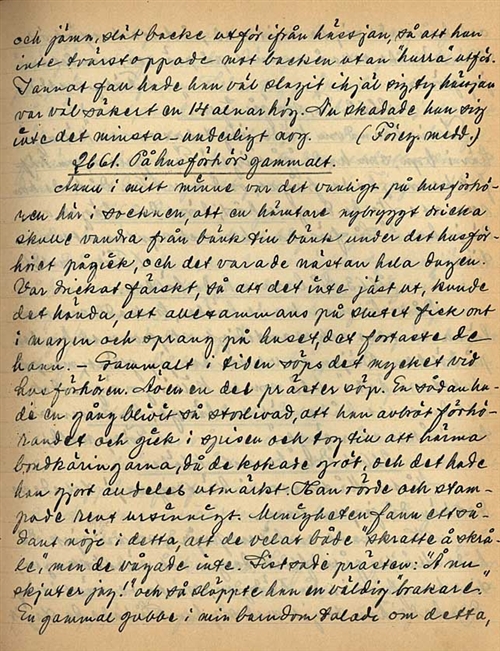 och jämn, slät backe utför ifrån hässjan, så att han
inte tvärstoppade mot backen utan "hurra" utför.
I annat fall hade han väl slagit ihjäl sig, ty hässjan
var väl säkert en 14 alnar hög. Nu skadade han sig
inte det minsta – underligt nog. (Föreg. medd.)
2661. På husförhör gammalt.
Ännu i mitt minne var det vanligt på husförhö-
ren här i socknen, att en hämtare nybryggt dricka
skulle vandra från bänk till bänk under det husför-
höret pågick, och det varade nästan hela dagen.
Var drickat färskt, så att det inte jäst ut, kunde
det hända, att allesammans på slutet fick ont
i magen och sprang på huset, det fortaste de
hann. – Gammalt i tiden söps det mycket vid
husförhören. Även en del präster söp. En sådan ha-
de en gång blivit så storlivad, att han avbröt förhö-
randet och gick i spisen och tog till att härma
bondkäringarna, då de kokade gröt, och det hade
han gjort alldeles utmärkt. Han rörde och stam-
pade rent ursinnigt. Menigheten fann ett så-
dant nöje i detta, att de velat både "skratte å skrå-
le", men de vågade inte. Sist sade prästen: "Å nu
skjuter jag!" och så släppte han en väldig "brakare".
En gammal gubbe i min barndom talade om detta,